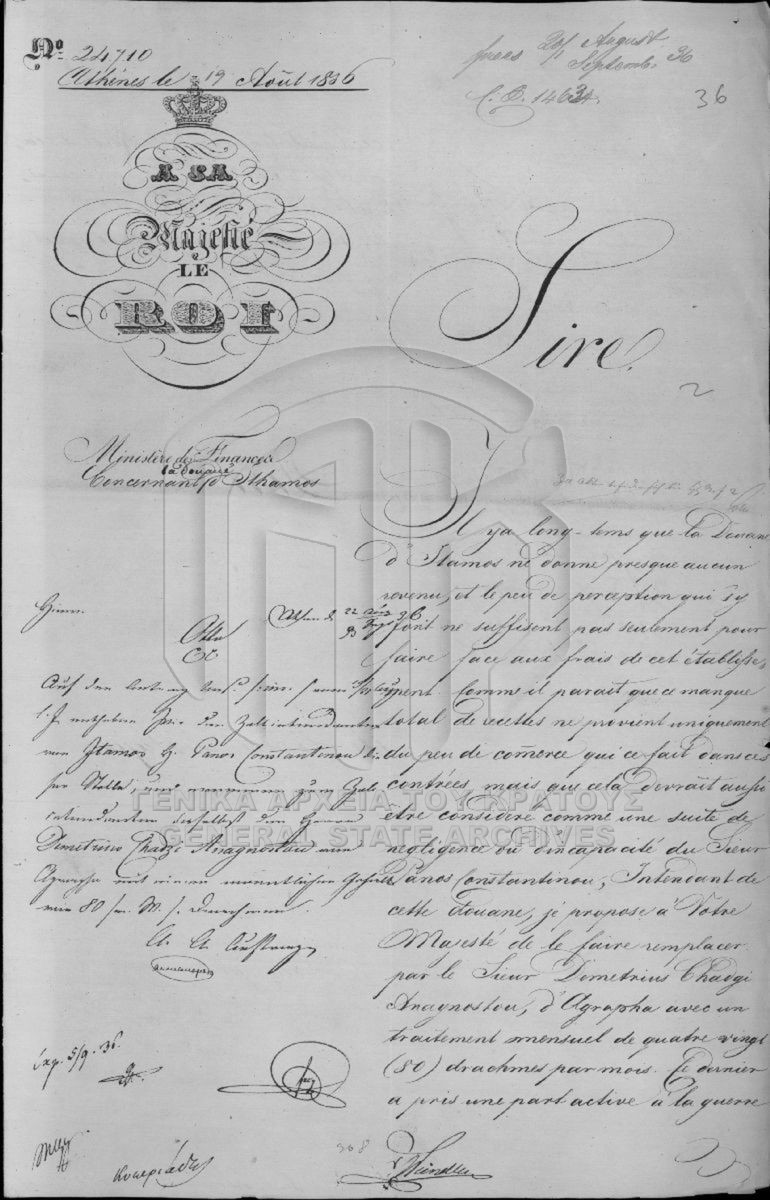 No 24710
Athènes le 19 Août 1836
praes 20/ August
Septemb. 36
C. B. 1463
36
A SA
Majesté
LE
ROI
Sire.
2
Ministère des Finances
la douane
Concernant d'Ithamos
Il y a long-tems que la Douane
d'Itamos ne donne presque aucun
revenu, et le peu de perception qui s'y
font ne suffisent pas seulement pour
faire face aux frais de cet établisse-
ment. Comme il parait que ce manque
total de recettes ne provient uniquement
du peu de comerce qui ce fait dans ces
contrées, mais que cela devrait aussi
être considéré comme une suite de
negligence ou d'incapacité du Sieur
Panos Constantinou, Intendant de
cette Douane, je propose à Votre
Majesté de le faire remplacer
par le Sieur Dimetrius Chadgi
Anagnostou, d'Agrapha avec un
traitement mensuel de quatre vingt
(80) drachmes par mois. Ce dernier
a pris une part active à la guerre
Otto
Athen d. 22 36
Auf den Antrag
wir den Zollintendanten
von Itamos H. Panos Constantinou
ser Stelle, und ernennen zum Zoll-
intendanten daselbst den Herrn
Dimetrius Chadgi Anagnostou von
Agrapha mit einem monatlichen Gehalte
von 80
exp. 5/9. 36.
308
ΓΕΝΙΚΑ ΑΡΧΕΙΑ ΤΟΥ ΚΡΑΤΟΥΣ
GENERAL STATE ARCHIVES